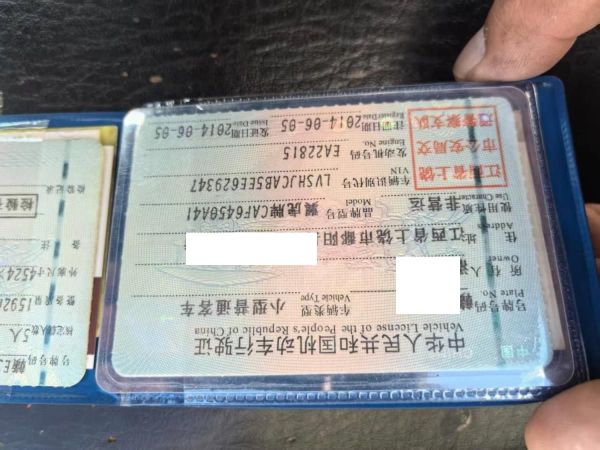 中华人民共和国机动车行驶证
Vehicle License of the People's Republic of China
号牌号码 车辆类型 小型普通客车
Plate No. Vehicle Type
所有人
Owner
住址 江西省上饶市鄱阳
Address
使用性质 非营运 品牌型号 翼虎牌CAF6450A41
Use Character Model
江西省上饶
市公安局交
通警察支队
车辆识别代号 LVSHJCAB5EE629347
VIN
发动机号码 EA22815
Engine No.
注册日期 2014-06-05 发证日期 2014-06-05
Register Date Issue Date
中国
号牌号码 赣E
核定载人数 5人
整备质量 1592
外廓尺寸 4524
备注
检验记录
检验